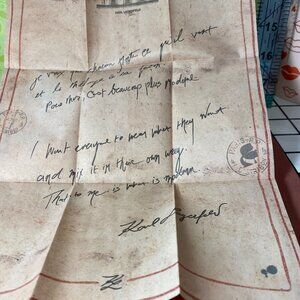 KARL LAGERFELD
je veux que chacun porte ce qu'il veut
et le mélange à sa façon.
Pour moi, c'est beaucoup plus moderne
I want everyone to wear what they want
and mix it in their own way.
That to me is what is modern
Karl Lagerfeld